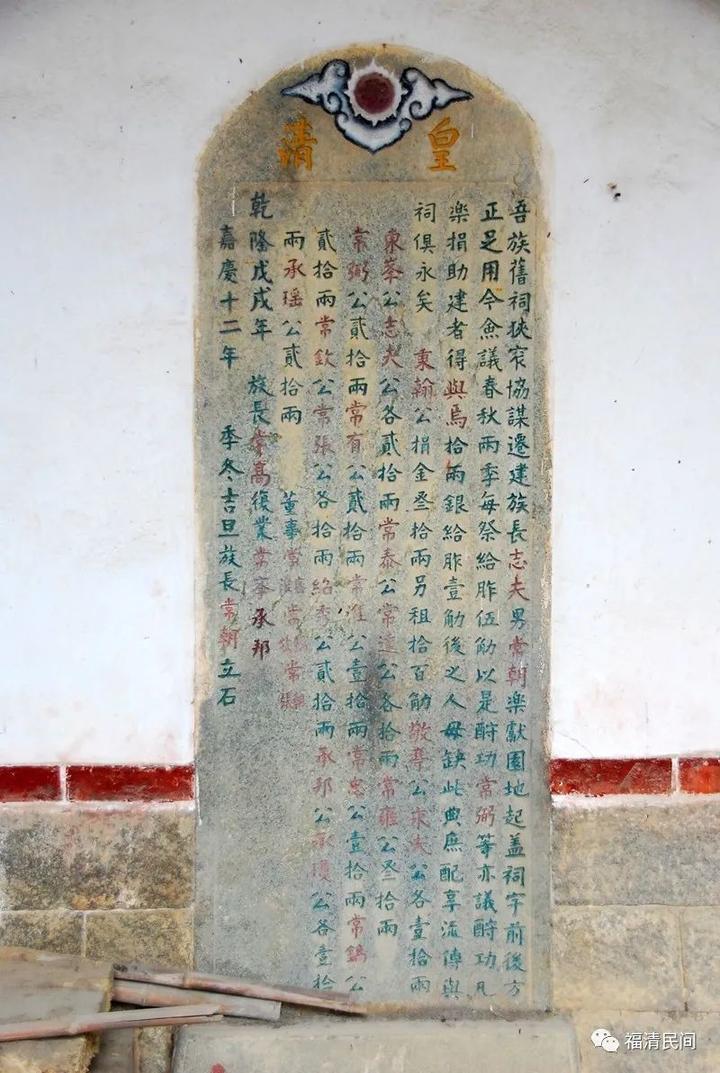 皇清
吾族舊祠狹窄協謀遷建族長志夫男常朝樂獻園地起蓋祠宇前後方
正足用今僉議春秋兩季每祭給胙伍觔以是酧功常弼等亦議酧功凡
樂捐助建者得與焉拾兩銀給胙壹觔後之人毋缺此典庶配享流傳與
祠俱永矣 東翰公捐金叄拾兩另租拾百觔敬尊公求夫公各壹拾兩
東峯公志夫公各貳拾兩常泰公常遠公各拾兩常雍公叄拾兩
常弼公貳拾兩常有公貳拾兩常淮公壹拾兩常忠公壹拾兩常鎬公
貳拾兩常欽公常張公各拾兩紹秀公貳拾兩承邦公承瓊公各壹拾
兩承瑶公貳拾兩 董事常
乾隆戊戌年 族長常高復業常峯承邦
嘉慶十二年 季冬吉旦族長常朝立石
福清民间